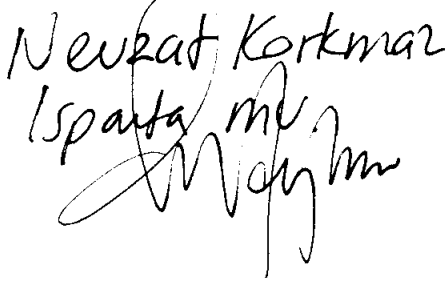 Nevzat Korkmaz
Isparta mv